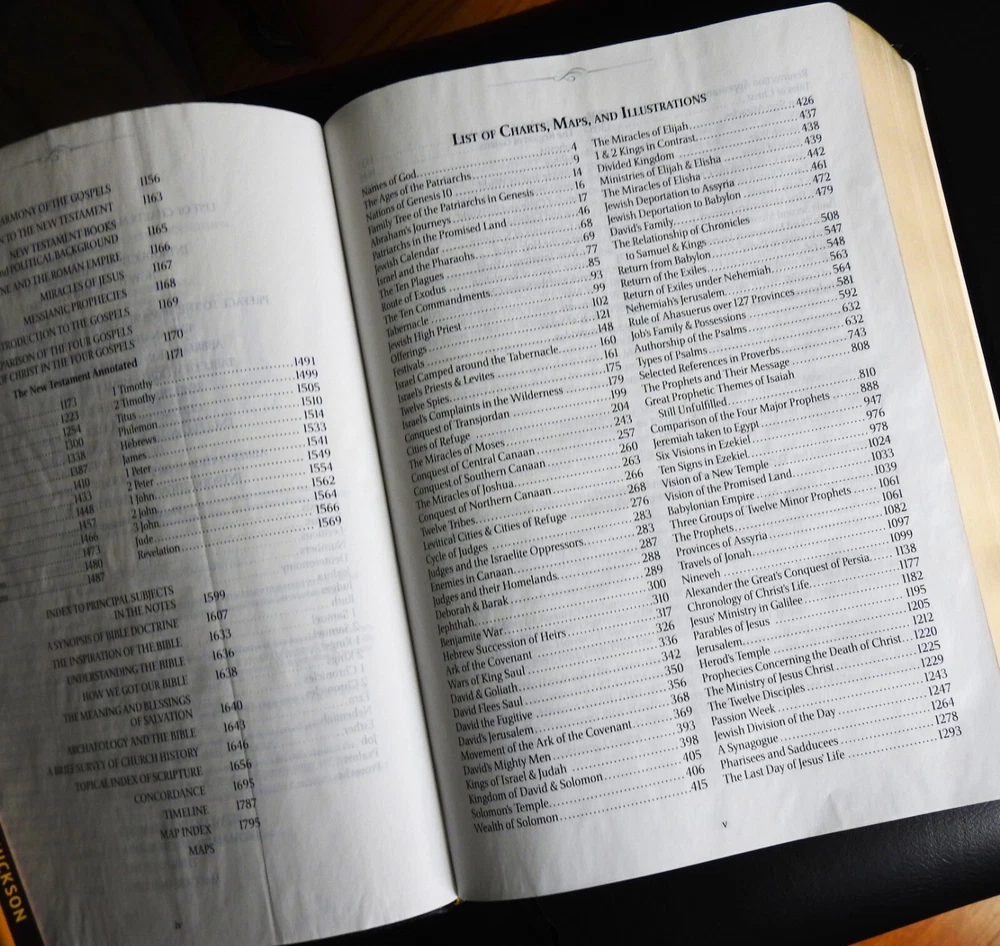 HARMONY OF THE GOSPELS 1156
TO THE NEW TESTAMENT 1163
NEW TESTAMENT BOOKS
POLITICAL BACKGROUND 1165
AND THE ROMAN EMPIRE 1166
MIRACLES OF JESUS 1167
MESSIANIC PROPHECIES 1168
INTRODUCTION TO THE GOSPELS 1169
OF THE FOUR GOSPELS 1170
OF CHRIST IN THE FOUR GOSPELS 1171
The New Testament Annotated
1173
1223
1254
1300
1338
1387
1410
1433
1448
1457
1466
1473
1480
1487
1 Timothy 1491
2 Timothy 1499
Titus 1505
Philemon 1510
Hebrews 1514
James 1533
1 Peter 1541
2 Peter 1549
1 John 1554
2 John 1562
3 John 1564
Jude 1566
Revelation 1569
INDEX TO PRINCIPAL SUBJECTS
IN THE NOTES 1599
A SYNOPSIS OF BIBLE DOCTRINE 1607
THE INSPIRATION OF THE BIBLE 1633
UNDERSTANDING THE BIBLE 1636
HOW WE GOT OUR BIBLE 1638
THE MEANING AND BLESSINGS
OF SALVATION 1640
ARCHAEOLOGY AND THE BIBLE 1643
A BRIEF SURVEY OF CHURCH HISTORY 1646
TOPICAL INDEX OF SCRIPTURE 1656
CONCORDANCE 1695
TIMELINE 1787
MAP INDEX 1795
MAPS
iv
LIST OF CHARTS, MAPS, AND ILLUSTRATIONS
Names of God 4
The Ages of the Patriarchs 9
Nations of Genesis 10 14
Family Tree of the Patriarchs in Genesis 16
Abraham's Journeys 17
Patriarchs in the Promised Land 46
Jewish Calendar 68
Israel and the Pharaohs 69
The Ten Plagues 77
Route of Exodus 85
The Ten Commandments 93
Tabernacle 99
Jewish High Priest 102
Offerings 121
Festivals 148
Israel Camped around the Tabernacle 160
Israel's Priests & Levites 161
Twelve Spies 175
Israel's Complaints in the Wilderness 179
Conquest of Transjordan 199
Cities of Refuge 204
The Miracles of Moses 243
Conquest of Central Canaan 257
Conquest of Southern Canaan 260
The Miracles of Joshua 263
Conquest of Northern Canaan 266
Twelve Tribes 268
Levitical Cities & Cities of Refuge 276
Cycle of Judges 283
Judges and the Israelite Oppressors 283
Enemies in Canaan 287
Judges and their Homelands 288
Deborah & Barak 289
Jephthah 300
Benjamite War 310
Hebrew Succession of Heirs 317
Ark of the Covenant 326
Wars of King Saul 336
David & Goliath 342
David Flees Saul 350
David the Fugitive 356
David's Jerusalem 368
Movement of the Ark of the Covenant 369
David's Mighty Men 393
Kings of Israel & Judah 398
Kingdom of David & Solomon 405
Solomon's Temple 406
Wealth of Solomon 415
The Miracles of Elijah 426
1 & 2 Kings in Contrast 437
Divided Kingdom 438
Ministries of Elijah & Elisha 439
The Miracles of Elisha 442
Jewish Deportation to Assyria 461
Jewish Deportation to Babylon 472
David's Family 479
The Relationship of Chronicles
to Samuel & Kings 508
Return from Babylon 547
Return of the Exiles 548
Return of Exiles under Nehemiah 563
Nehemiah's Jerusalem 564
Rule of Ahasuerus over 127 Provinces 581
Job's Family & Possessions 592
Authorship of the Psalms 632
Types of Psalms 632
Selected References in Proverbs 743
The Prophets and Their Message 808
Great Prophetic Themes of Isaiah
Still Unfulfilled 810
Comparison of the Four Major Prophets 888
Jeremiah taken to Egypt 947
Six Visions in Ezekiel 976
Ten Signs in Ezekiel 978
Vision of a New Temple 1024
Vision of the Promised Land 1033
Babylonian Empire 1039
Three Groups of Twelve Minor Prophets 1061
The Prophets 1061
Provinces of Assyria 1082
Travels of Jonah 1097
Nineveh 1099
Alexander the Great's Conquest of Persia 1138
Chronology of Christ's Life 1177
Jesus' Ministry in Galilee 1182
Parables of Jesus 1195
Jerusalem 1205
Herod's Temple 1212
Prophecies Concerning the Death of Christ 1220
The Ministry of Jesus Christ 1225
The Twelve Disciples 1229
Passion Week 1243
Jewish Division of the Day 1247
A Synagogue 1264
Pharisees and Sadducees 1278
The Last Day of Jesus' Life 1293
v